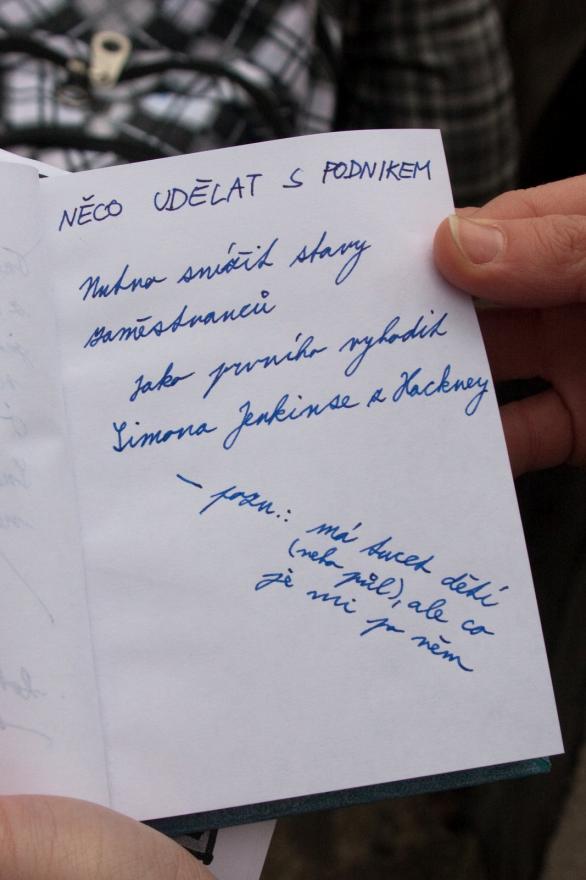 NĚCO UDĚLAT S PODNIKEM
Nutno snížit stavy
zaměstnanců
Jako prvního vyhodit
Simona Jenkinse z Hackney
– pozn.: má tucet dětí
(nebo půl), ale co
je mi po něm